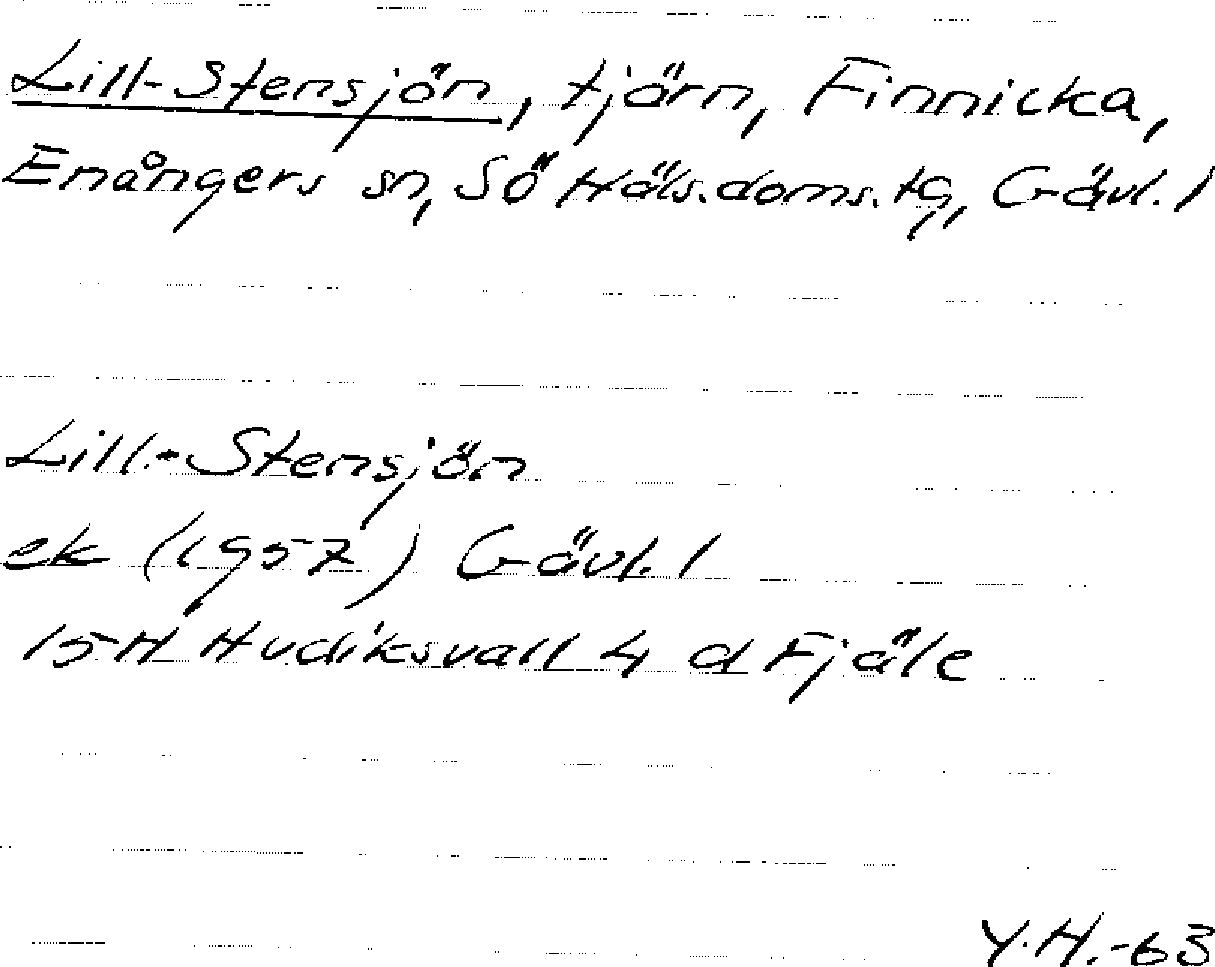 Lill-Stensjön, tjärn, Finnicka,
Enångers sn, Sö Häls.doms.tg, Gävl. l
Lill-Stensjön
ek (1957) Gävl. l
15 H Hudiksvall 4 d Fjäle
Y.H.-63